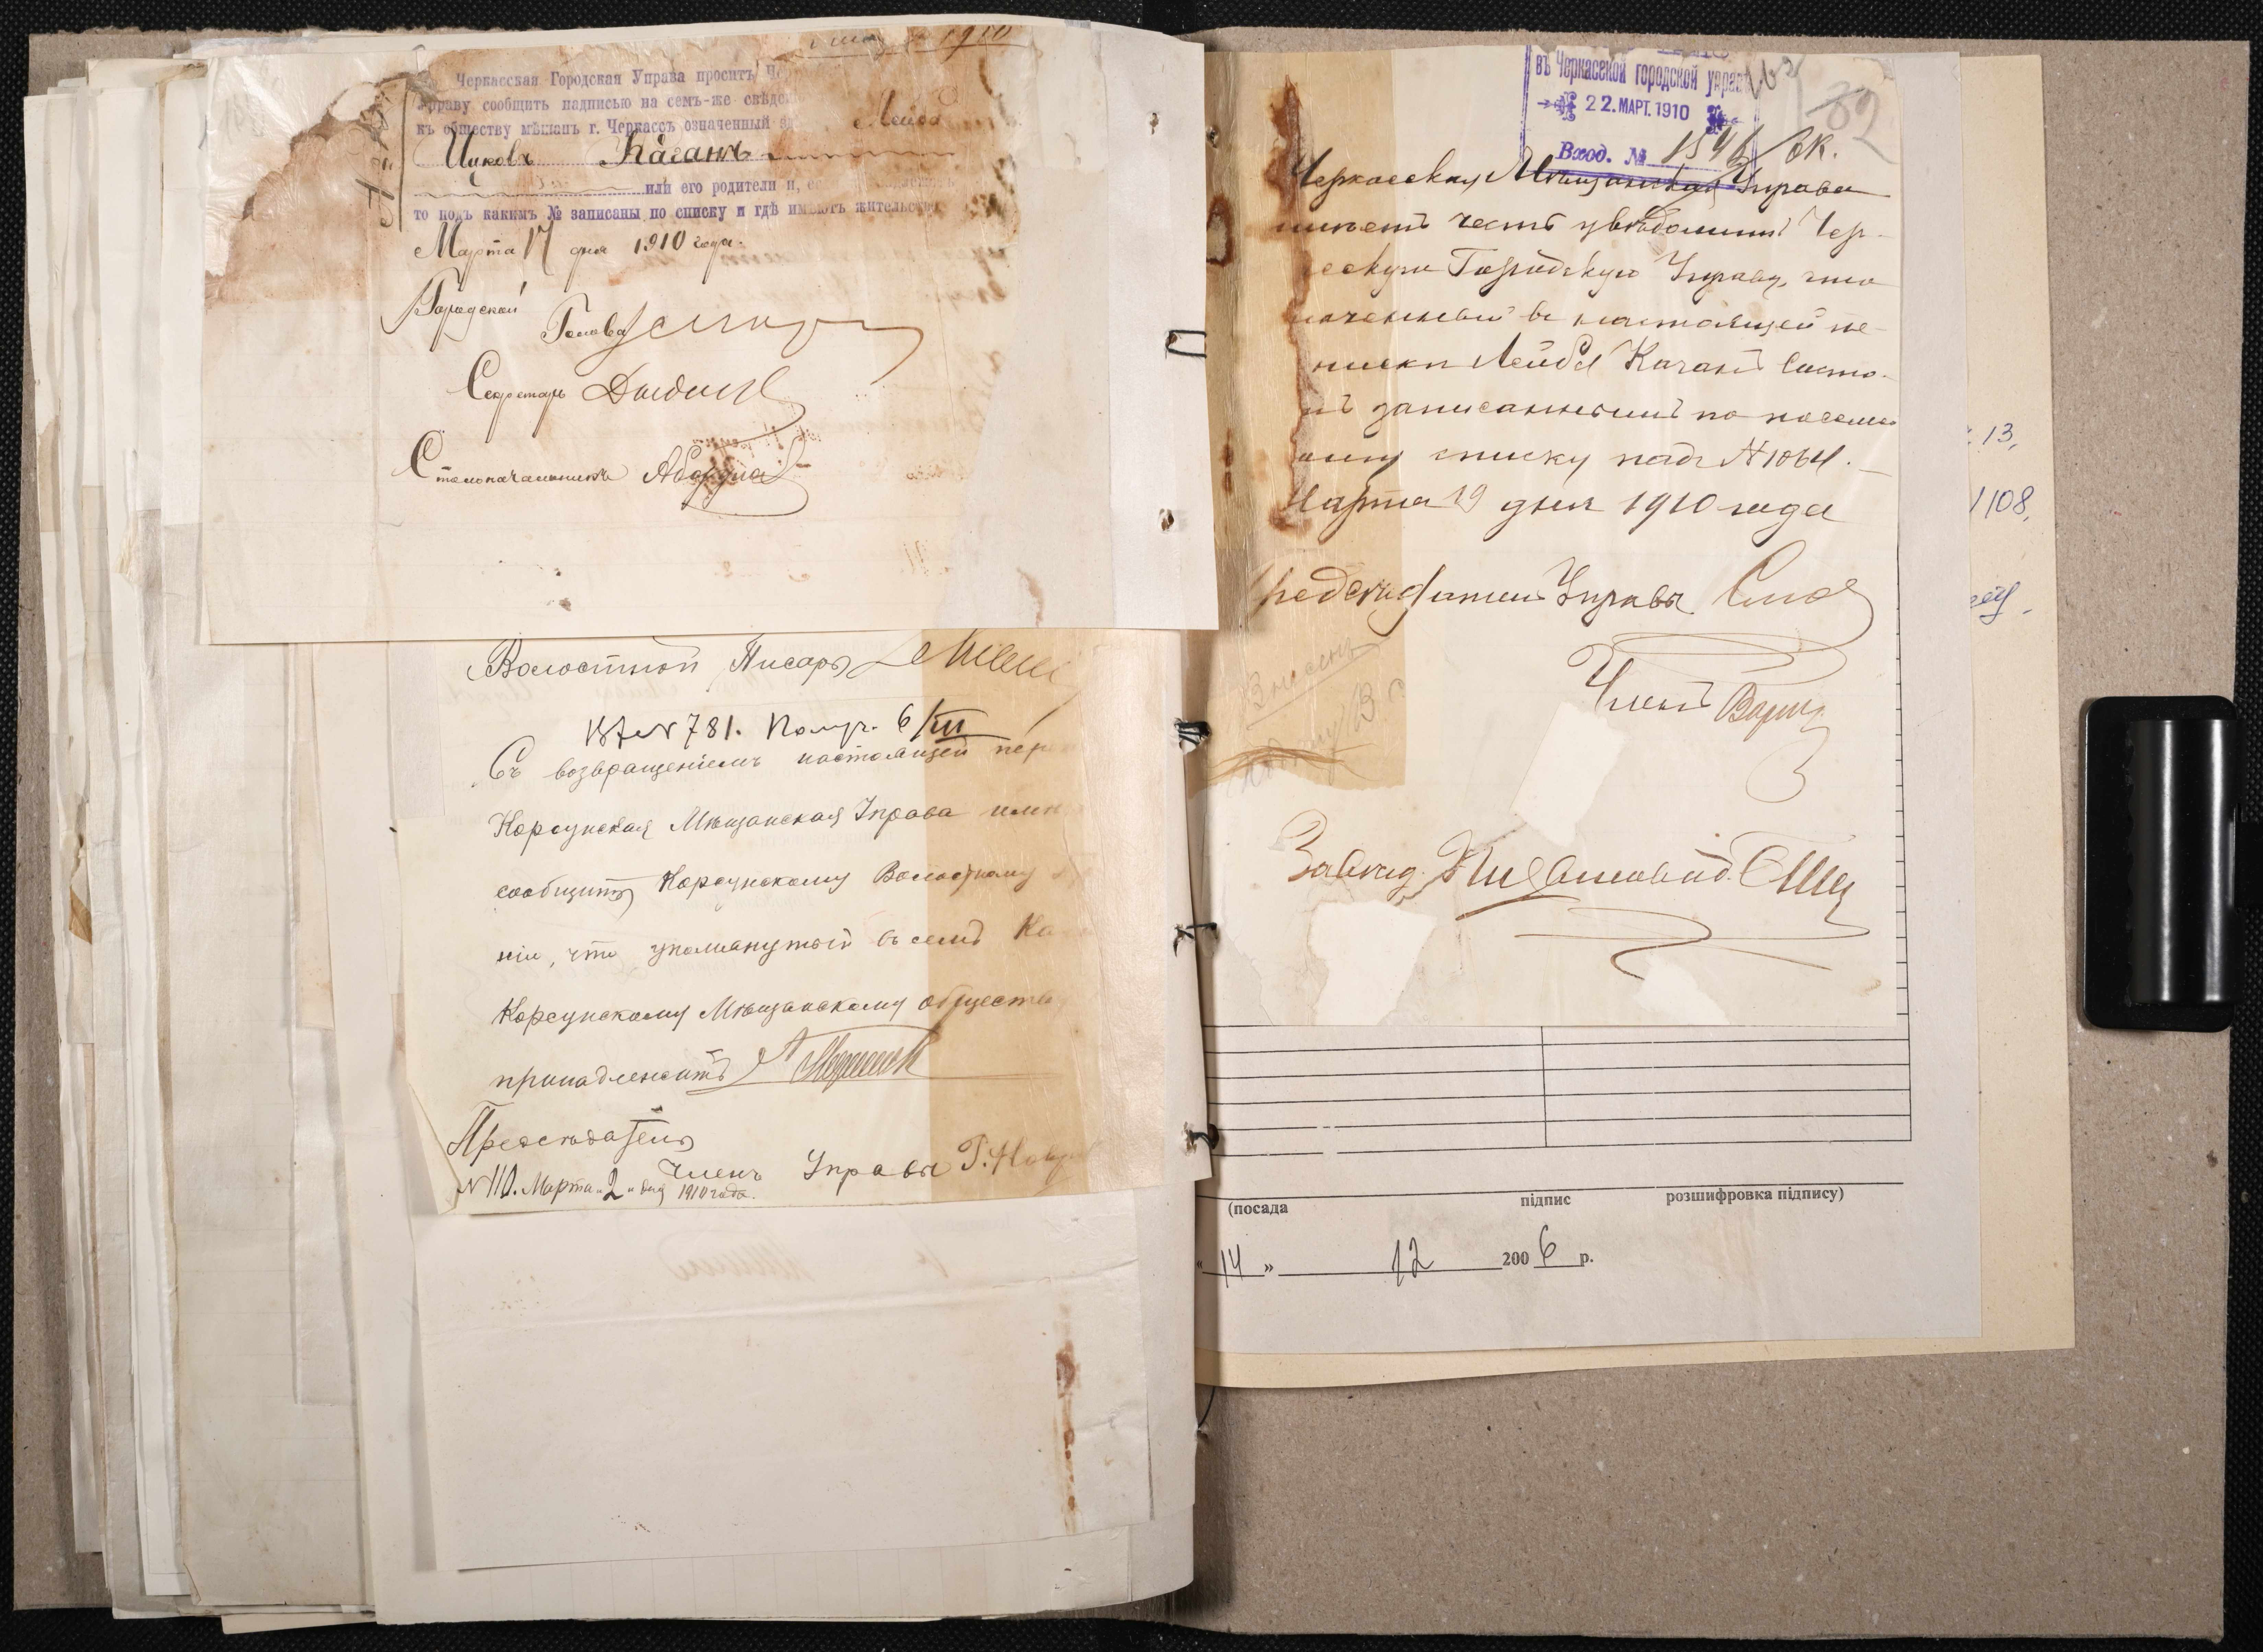 1910
Черкасская Городская Управа проситъ Чер
Управу сообщить надписью на семъ-же свѣдѣн
къ обществу мѣщанъ г. Черкассъ означенный
Лейба
Ицковъ Каганъ
или его родители и, ес
то подъ какимъ № записаны по списку и гдѣ имѣютъ жительство
Марта 17 дня 1910 года.
Городской
Голова
Секретарь
Столоначальникъ
Волостной Писарь
№ 781. Получ. 6/III
Съ возвращеніемъ настоящей пере
Корсунская Мѣщанская Управа имѣ
сообщить Корсунскому Волостному
нію, что упомянутый въ семъ Ка
Корсунскому Мѣщанскому обществу
принадлежитъ
Предсѣдатель
Членъ Управы
№ 110. Марта „2" дня 1910 года.
въ Черкасской городской управѣ
22. МАРТ. 1910
Вход. № 1546
82
Черкасская Мѣщанская Управа
имѣетъ честь увѣдомить Чер-
сскую Городскую Управу, что
наченный въ настоящей пе-
пискѣ Лейба Каганъ состо-
тъ записаннымъ по посеме
ному списку подъ № 1064.
Марта 19 дня 1910 года
Предсѣдатель Управы
Членъ
Завѣд.
13,
1108,
(посада підпис розшифровка підпису)
« 14 » 12 2006 р.